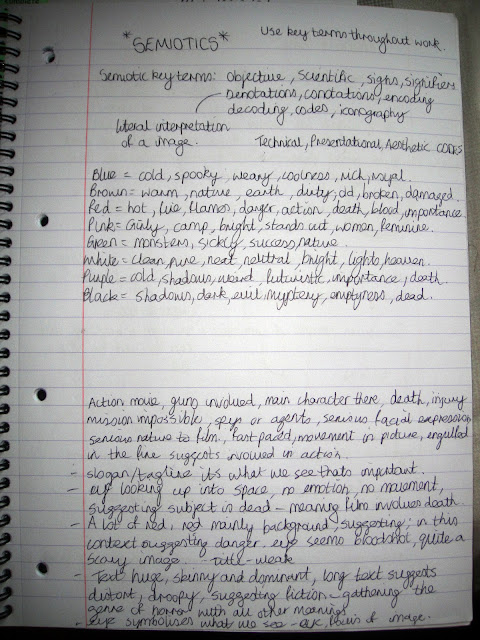 *SEMIOTICS*
Use key terms throughout work.
Semiotic key terms: objective, scientific, signs, signifiers
denotations, conotations, encoding
decoding, codes, iconography
literal interpretation
of a image.
Technical, Presentational, Aesthetic CODES
Blue = cold, spooky, weary, coolness, rich, royal.
Brown = warm, nature, earth, dusty, old, broken, damaged.
Red = hot, fire, flames, danger, action, death, blood, importance.
Pink = Girly, camp, bright, stands out, women, feminine.
Green = monsters, sickly, success, nature.
White = clean, pure, neat, neutral, bright, lights, heaven.
Purple = cold, shadows, weird, futuristic, importance, death.
Black = shadows, dark, evil, mystery, emptyness, dead.
Action movie, guns involved, main character there, death, injury
mission impossible, spys or agents, serious facial expression
serious nature to film. Fast paced, movement in picture, engulfed
in the fire suggests involved in action.
- slogan/tagline its what we see thats important.
- eye looking up into space, no emotion, no movement,
suggesting subject is dead - meaning film involves death.
- A lot of red, red mainly background suggesting; in this
context suggesting danger. eye seems bloodshot, quite a
scary image - title - weak
- Text huge, skinny and dominant, long text suggests
distort, droopy, suggesting fiction - gathering the
genre of horror with all other meanings.
- eye symbolises what we see - eye, focus of image.